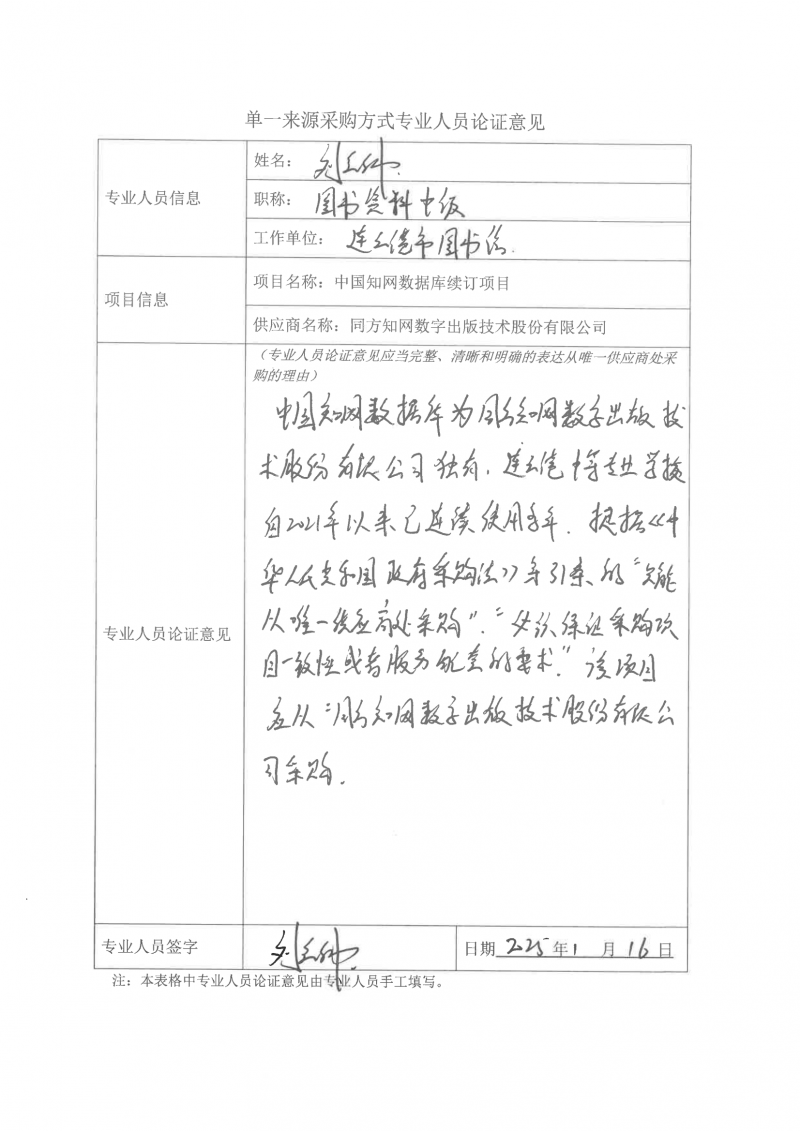 单一来源采购方式专业人员论证意见
专业人员信息
姓名：刘
职称：图书资料中级
工作单位：连云港市图书馆.
项目信息
项目名称：中国知网数据库续订项目
供应商名称：同方知网数字出版技术股份有限公司
专业人员论证意见
（专业人员论证意见应当完整、清晰和明确的表达从唯一供应商处采
购的理由）
中国知网数据库为同方知网数字出版技
术股份有限公司独有，连云港中等专业学校
自2021年以来已连续使用多年．根据《中
华人民共和国政府采购法》第31条的“只能
从唯一供应商处采购”.“必须保证采购项
目一致性或者服务配套的要求.”该项目
应从“同方知网数字出版技术股份有限公
司采购.
专业人员签字
刘
日期 2025年1月16日
注：本表格中专业人员论证意见由专业人员手工填写。